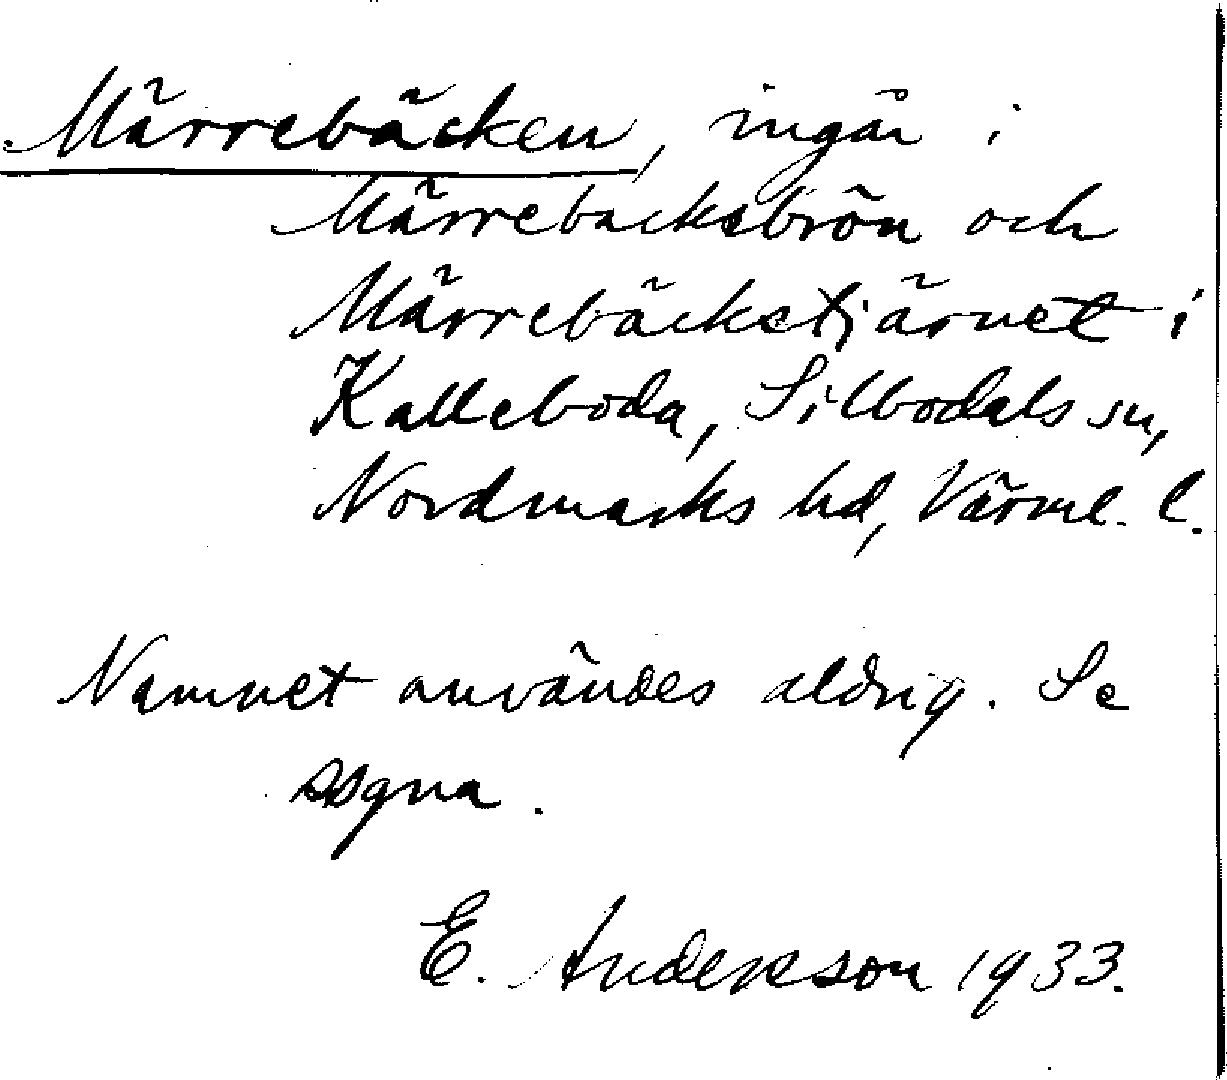 Märrebäcken, ingår i
Märrebäcksbrôn och
Märrebäckstjärnet i
Kalleboda, Silbodals sn,
Nordmarks hd, Värml. l.
Namnet användes aldrig. Se
sogna.
E. Andersson 1933.